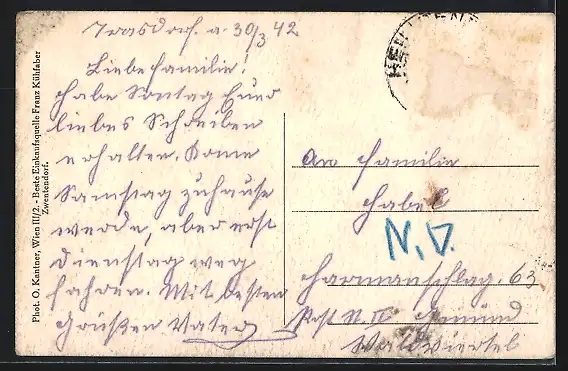 Phot. O. Kantner, Wien III/2. - Beste Einkaufsquelle Franz Kühfaber
Zwentendorf.
Trasdorf. a. 30/3 42
Liebe Familie!
Habe Sontag Euer
liebes Schreiben
erhalten. Kome
Samstag zuhause
werde, aber erst
Dienstag weg
fahren. Mit besten
Grüßen Vater
An Familie
Habel
N.D.
Harmanschlag. 63
Post N. Gmünd
Waldviertel